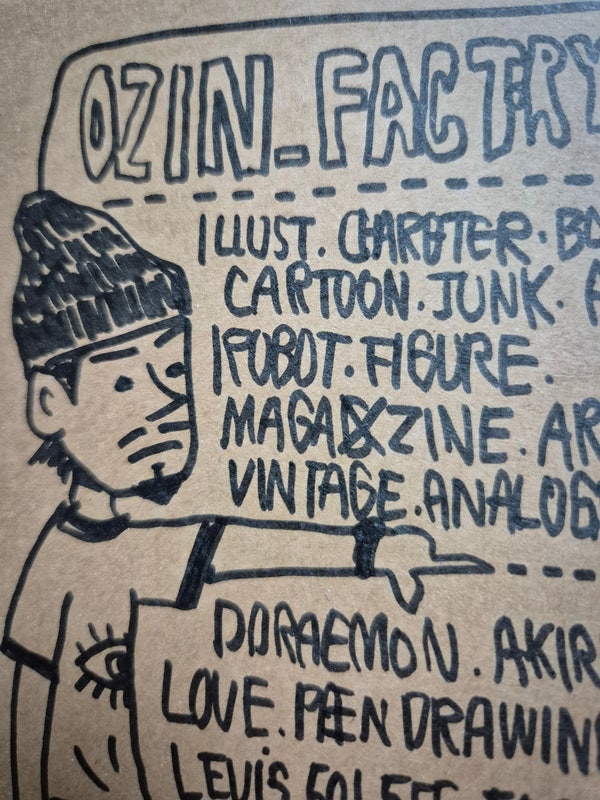 OZIN_FACTORY
ILLUST. CHARACTER. BO
CARTOON. JUNK.
ROBOT. FIGURE.
MAGAZINE. AR
VINTAGE. ANALOG
DORAEMON. AKIR
LOVE. PEN DRAWIN
LEVIS 501